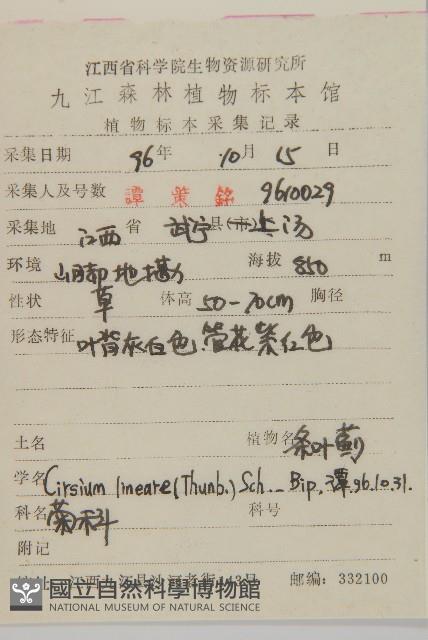 江西省科学院生物资源研究所
九江森林植物标本馆
植物标本采集记录
采集日期 96年 10月 15日
采集人及号数 譚策銘 9610029
采集地 江西省 武宁县(市)上汤
环境 山脚地墈 海拔 850 m
性状 草 体高 50-70cm 胸径
形态特征 叶背灰白色.管花紫红色
土名 植物名 条叶蓟
学名 Cirsium lineare (Thunb.) Sch.-Bip. 譚.96.10.31.
科名 菊科 科号
附记
江西九江县沙河老街 邮编:332100
國立自然科學博物館
NATIONAL MUSEUM OF NATURAL SCIENCE